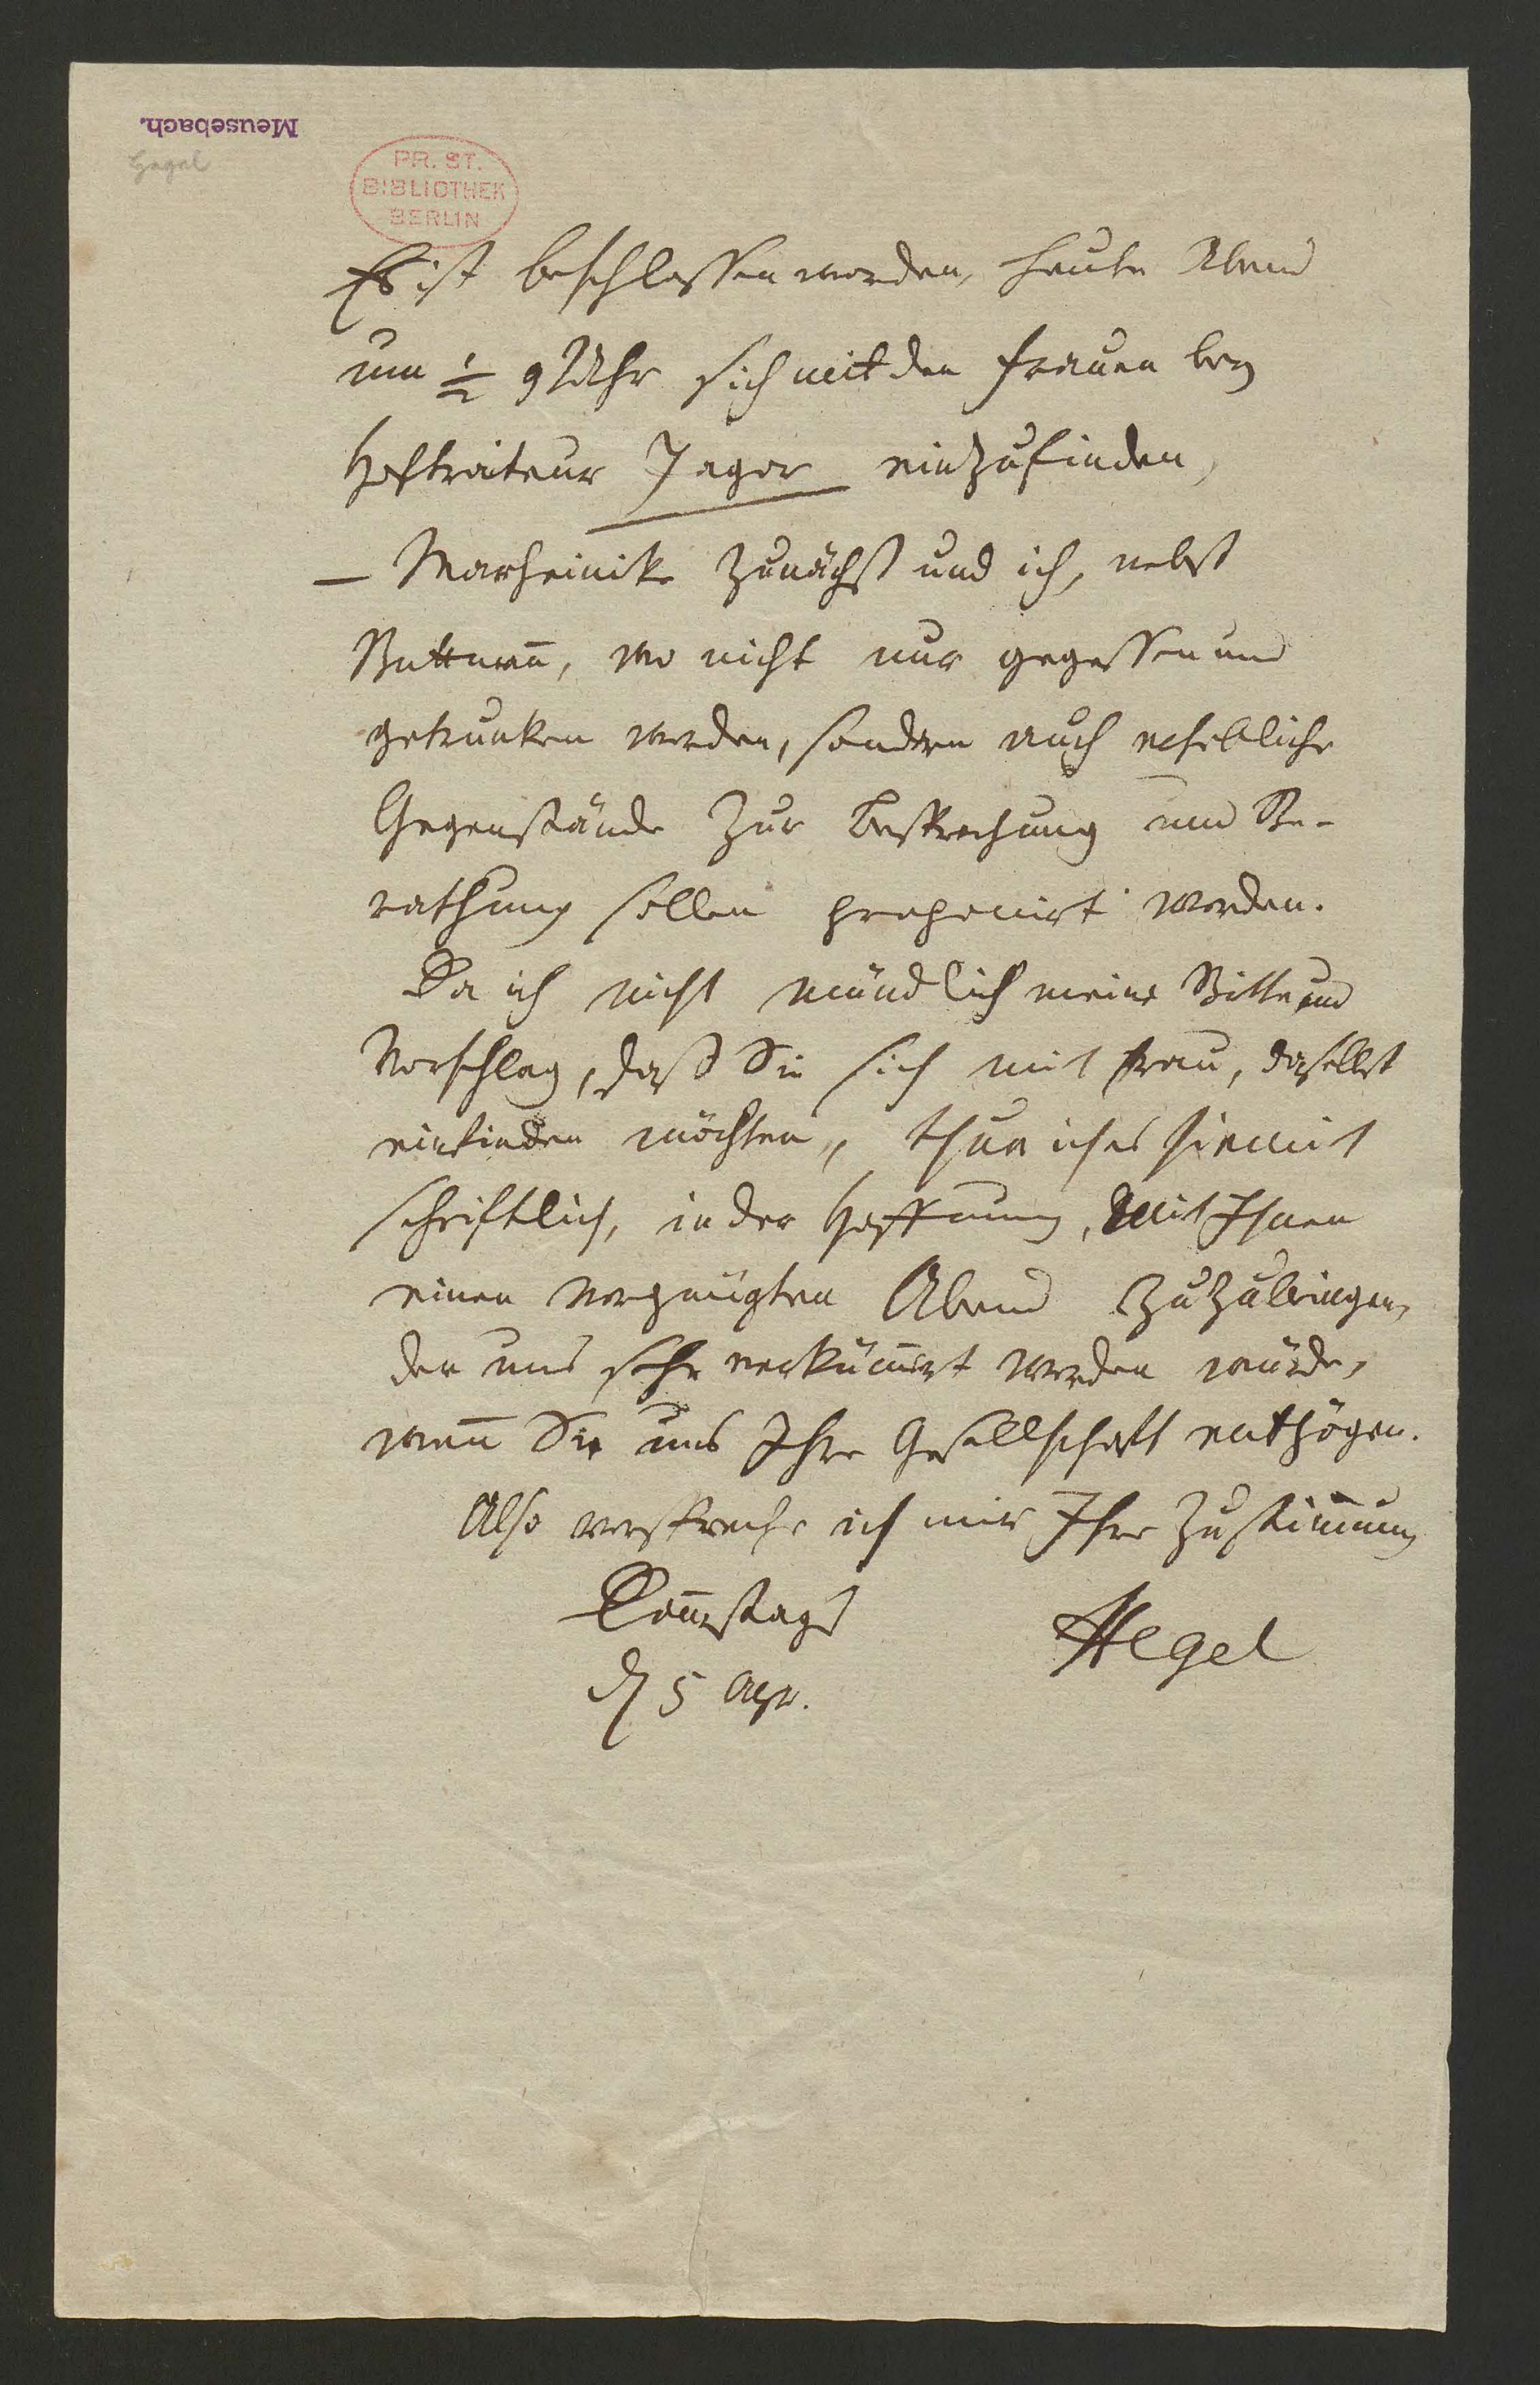 Meusebach.
Hegel
PR. ST.
BIBLIOTHEK
BERLIN
Es ist beschlossen worden, heute Abend
um ½ 9 Uhr sich mit den Frauen bey
Hoftraiteur Jagor einzufinden,
– Marheinike zunächst und ich, nebst
Buttman̄, wo nicht nur gegessen und
getrunken werden, sondern auch erhebliche
Gegenstände zur Besprechung und Be-
rathung sollen proponirt werden.
Da ich nicht mündlich meine Bitte und
Vorschlag, daß Sie sich mit Frau, daselbst
einfinden möchten, thue ich es hiemit
schriftlich, in der Hoffnung, mit Ihnen
einen vergnügten Abend zuzubringen,
der uns sehr verküm̄ert werden würde,
wen̄ Sie uns Ihre Gesellschaft entzögen.
Also verspreche ich mir Ihre Zustim̄ung
Don̄erstags
d 5 Apr.
Hegel